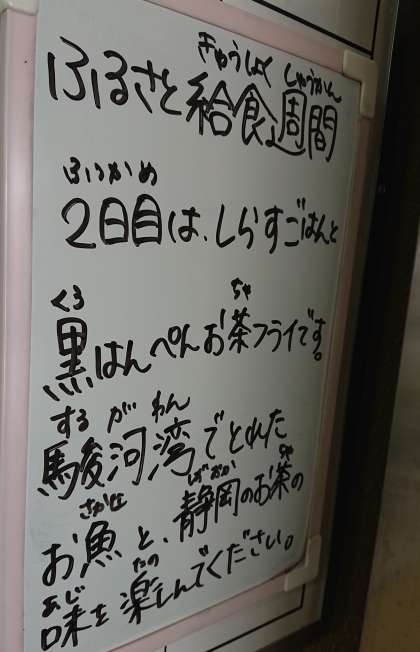 きゅうしょく しゅうかん
ふるさと給食週間
ふつかめ
2日目は、しらすごはんと
くろ ちゃ
黒はんぺんお茶フライです。
するがわん
駿河湾でとれた
さかな しずおか ちゃ
お魚と、静岡のお茶の
あじ たの
味を楽しんでください。